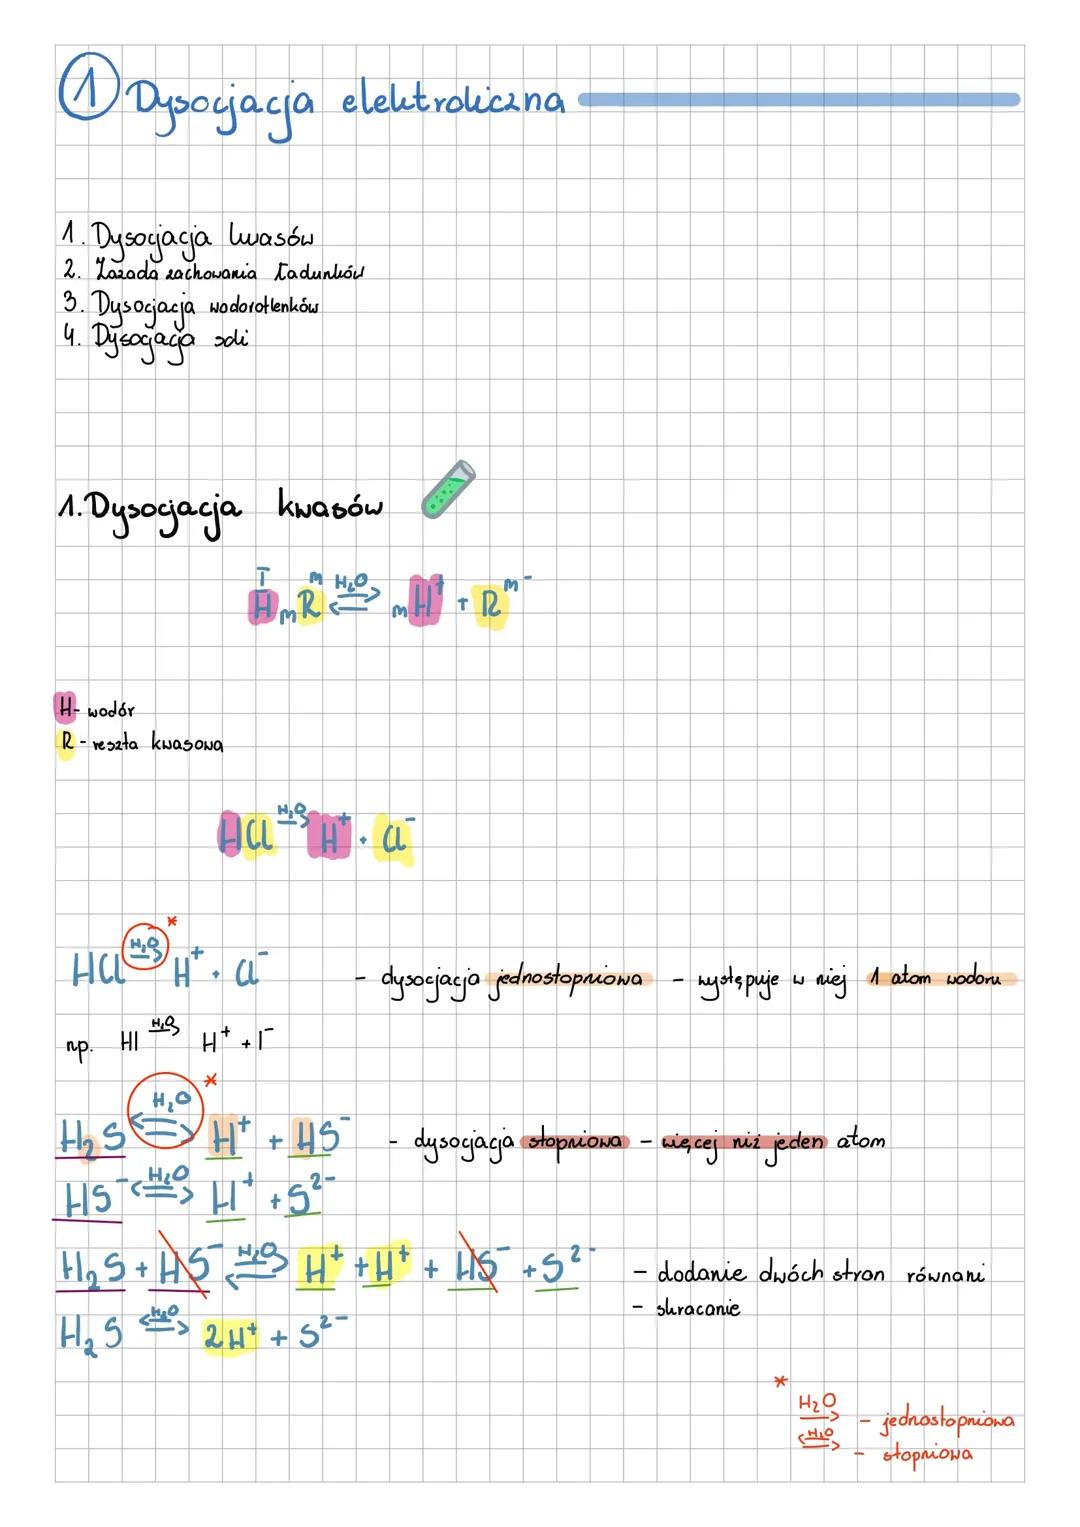 1 Dysocjacja elektroliczna
1. Dysocjacja kwasów
2. Zasada zachowania ładunków
3. Dysocjacja wodorotlenków
4. Dysocjacja soli
1. Dysocjacja kwasów
HᴵₘRᵐ ⇌ (H₂O) mH⁺ + Rᵐ⁻
H - wodór
R - reszta kwasowa
HCl → (H₂O) H⁺ + Cl⁻
HCl → (H₂O) * H⁺ + Cl⁻ - dysocjacja jednostopniowa - występuje w niej 1 atom wodoru
np. HI → (H₂O) H⁺ + I⁻
H₂S ⇌ (H₂O) * H⁺ + HS⁻ - dysocjacja stopniowa - więcej niż jeden atom
HS⁻ ⇌ (H₂O) H⁺ + S²⁻
H₂S + HS⁻ ⇌ (H₂O) H⁺ + H⁺ + HS⁻ + S²⁻ - dodanie dwóch stron równani
- skracanie
H₂S ⇌ (H₂O) 2H⁺ + S²⁻
*
H₂O → - jednostopniowa
H₂O ⇌ - stopniowa